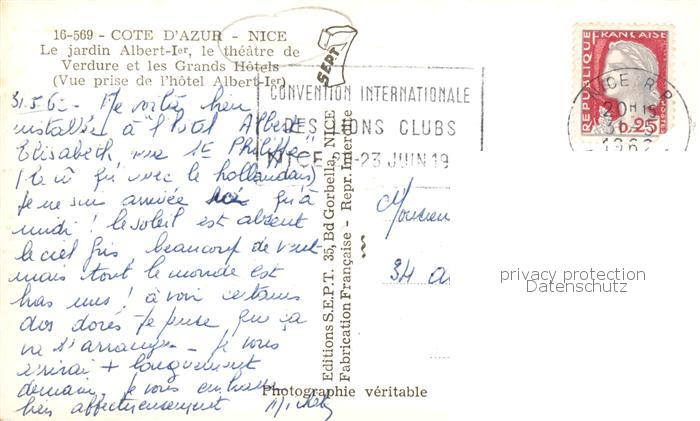 16-569 - COTE D'AZUR - NICE
Le jardin Albert-Ier, le théâtre de
Verdure et les Grands Hôtels
(Vue prise de l'hôtel Albert-Ier)
SEPT
CONVENTION INTERNATIONALE
DES LIONS CLUBS
NICE 21-23 JUIN 19
REPUBLIQUE FRANÇAISE
POSTES
0,25
NICE R.P.
20H15
1962
31.5.6 - Me voilà bien
installée à l'hôtel Albert
Elisabeth, rue St Philippe
( le où avec le hollandais)
Je ne suis arrivée qu'à
midi ! le soleil est absent
le ciel gris, beaucoup de vent
mais tout le monde est
bras nus ! à voir certains
dos dorés - je pense que ça
va s'arranger - je vous
écrirai + longuement
demain, je vous embrasse
bien affectueusement
Editions S.E.P.T. 35, Bd Gorbella, NICE
Fabrication Française - Repr. Interdite
Monsieur
34 a
Photographie véritable
privacy protection
Datenschutz